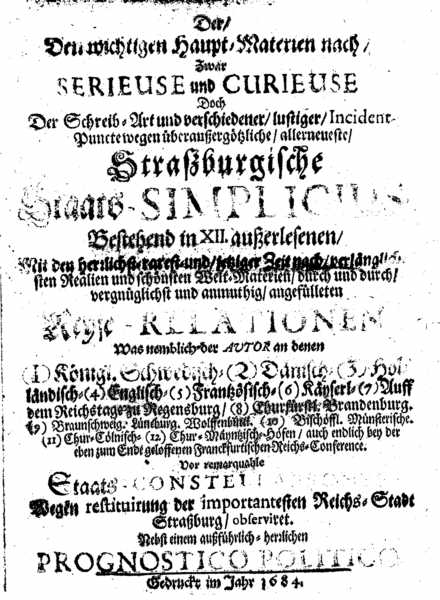 Der/
Den wichtigen Haupt-Materien nach/
Zwar
SERIEUSE und CURIEUSE
Doch
Der Schreib-Art und verschiedener/lustiger/Incident-
Puncte wegen überaußergötzliche/allerneueste/
Straßburgische
Staats-SIMPLICIUS
Bestehend in XII. außerlesenen/
Mit den herrlichst-rarest-und/jetziger Zeit nach/verlänglich-
sten Realien und schönsten Welt-Materien/durch und durch/
vergnüglichst und anmuthig/angefülleten
Reyse-RELATIONEN
Was nemblich der AUTOR an denen
(1) Königl. Schwedisch-(2) Dänisch-(3) Hol-
ländisch-(4) Englisch-(5) Frantzösisch-(6) Käyserl-(7) Auff
dem Reichstage zu Regensburg/(8) Churfürstl. Brandenburg.
(9) Braunschweig. Lüneburg. Wolffenbüttl. (10) Bischöffl. Münsterische.
(11) Chur-Cölnisch-(12) Chur-Mäyntzisch-Höfen/auch endlich bey der
eben zum Ende geloffenen Franckfurtischen Reichs-Conference.
Vor remarquable
Staats-CONSTELLATIONEN
Wegen restituirung der importantesten Reichs-Stadt
Straßburg/observiret.
Nebst einem außführlich-herrlichen
PROGNOSTICO POLITICO
Gedruckt im Jahr 1684.